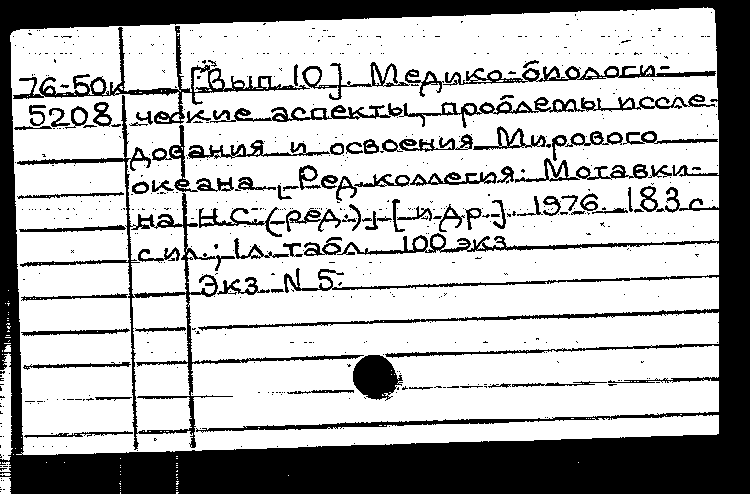 76-50к [Вып. 10]. Медико-биологи-
5208 ческие аспекты, проблемы иссле-
дования и освоения Мирового
океана [Ред. коллегия: Мотавки-
на Н.С. (ред.)] [и др.]. 1976. 183 с.
с ил.; 1 л. табл. 100 экз
Экз N 5.